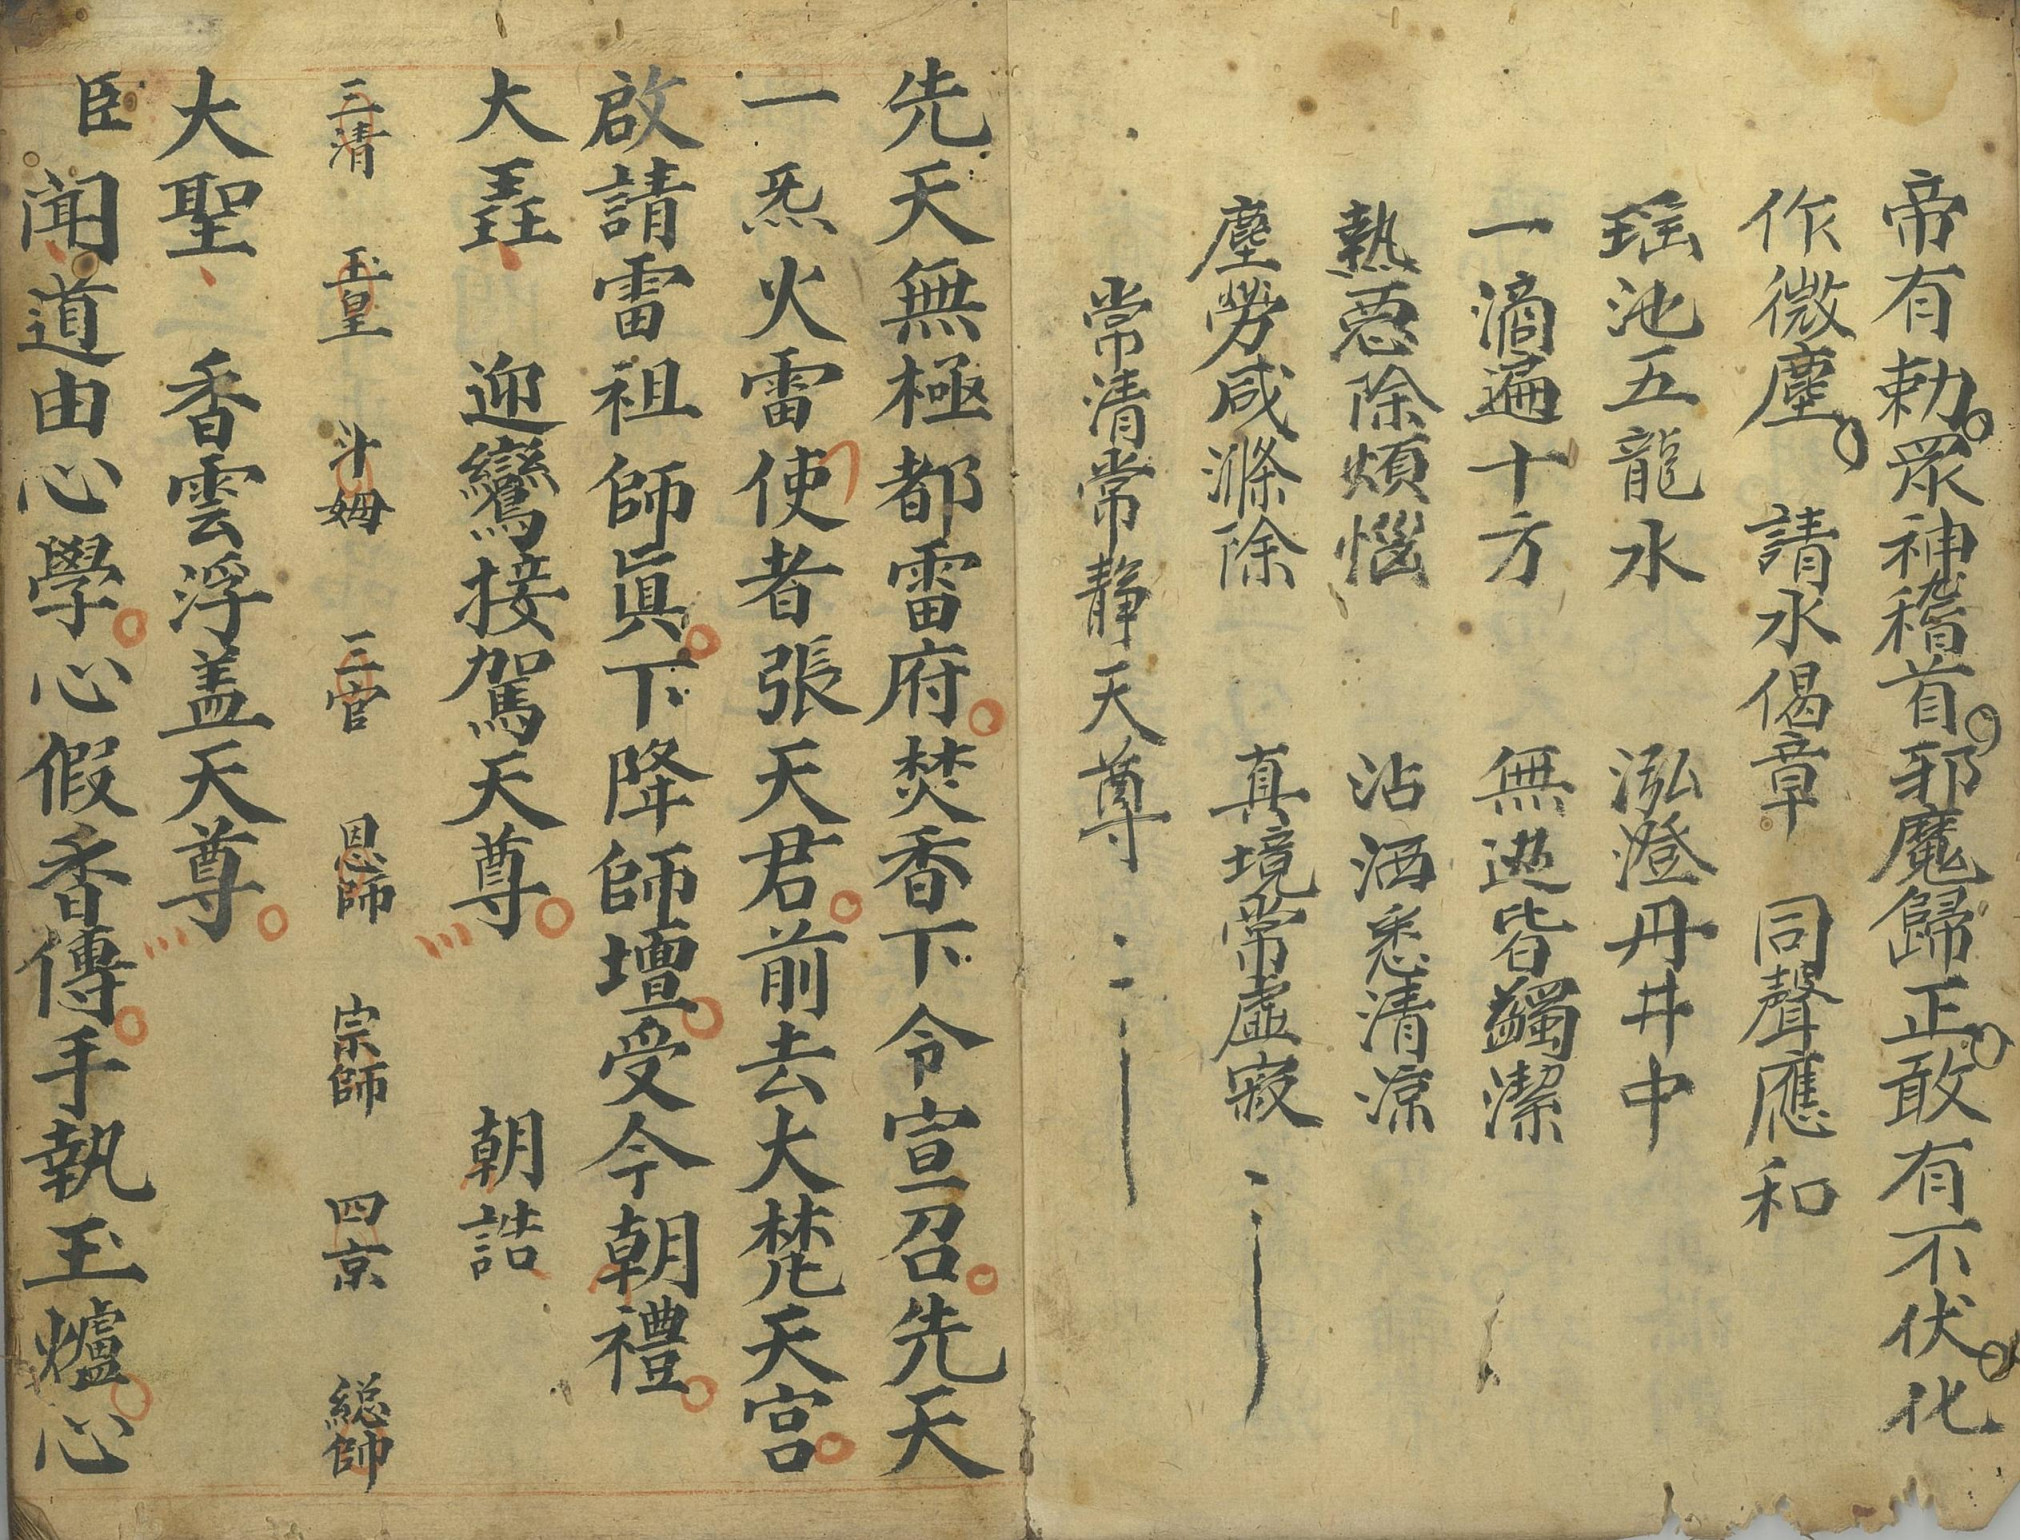 帝有勅眾神稽首邪魔歸正敢有不伏化
作微塵 請水偈章 同聲應和
瑶池五龍水 泓澄丹井中
一滴遍十方 無边皆蠲潔
熱惡除煩惱 沾洒悉清凉
塵勞咸滌除 真境常虛寂
常清常静天尊
先天無極都雷府焚香下令宣召先天
一炁火雷使者張天君前去大梵天宫
啟請雷祖師眞下降師壇受今朝禮
大𡔚 迎鸞接駕天尊 朝誥
三清 玉皇 斗姆 三官 恩師 宗師 四京 総帥
大聖 香雲浮盖天尊
臣聞道由心學心假香傳手執玉爐心